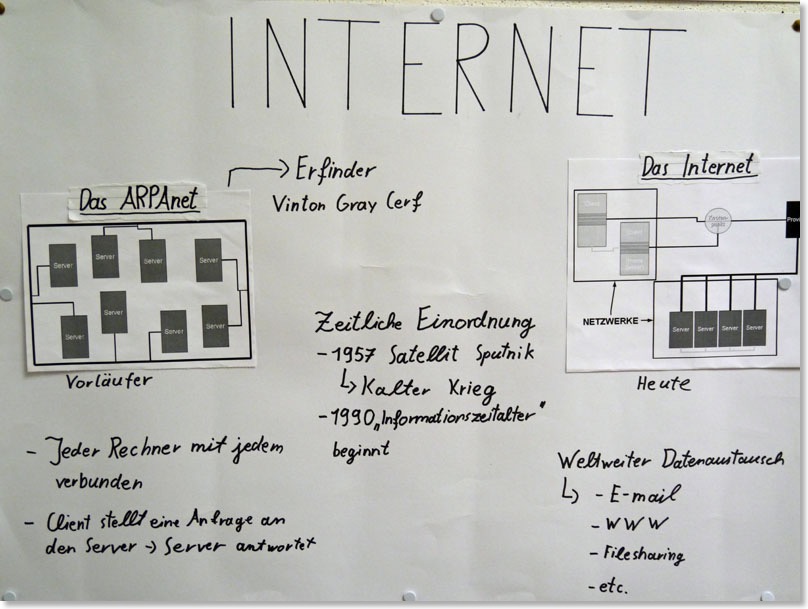 INTERNET
Das ARPAnet
Server
Server
Server
Server
Server
Server
Server
Server
Vorläufer
- Jeder Rechner mit jedem
verbunden
- Client stellt eine Anfrage an
den Server → Server antwortet
Erfinder
Vinton Gray Cerf
Zeitliche Einordnung
- 1957 Satellit Sputnik
↳ Kalter Krieg
- 1990 „Informationszeitalter"
beginnt
Das Internet
Client
Client
NETZWERKE
Server
Server
Server
Server
Heute
Weltweiter Datenaustausch
↳ - E-mail
- WWW
- Filesharing
- etc.